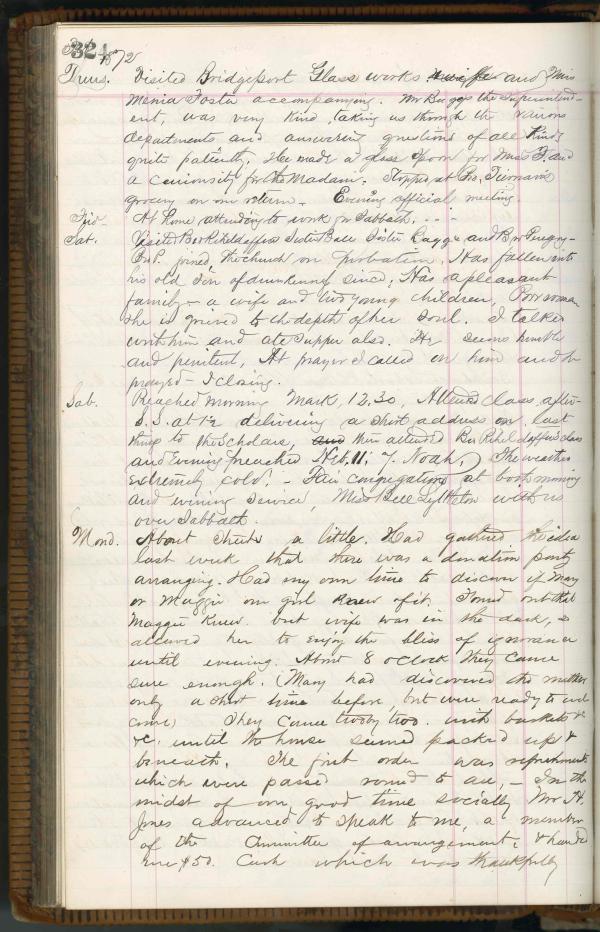 324 1872
Thurs. Visited Bridgeport Glass works. wife and Miss
Foster accompanying. Mr Buggs the Superintend-
ent, was very kind, taking us through the various
departments and answering questions of all kinds
quite patiently. He made a glass Spoon for Miss F. and
a curiosity for the Madam. Stopped at Bro.
grocery on our return - Evening official meeting.
Frid- At Home attending to work for Sabbath. - - -
Sat. Visited Bro Sister Bell Sister and Bro
Bro P. joined the church on probation. Has fallen into
his old Sin of drunkenness since. Has a pleasant
family - a wife and two young children, Poor woman
she is grieved to the depth of her soul. I talked
with him and ate Supper also. He seems humble
and penitent, At prayer I called on him and he
prayed - I closing.
Sab. Preached Morning Mark, 12.30, Attended class, after-
S.S. at 1½ delivering a short address on last
things to the Scholars, attended Bro class
and Evening preached Heb. 11. 7. Noah. The weather
extremely cold. - Fair congregations at both morning
and evening service, Miss Bell Lyttleton with us
over Sabbath.
Mond. About Streets a little. Had gathered the idea
last week that there was a donation party
arranging. Had my own time to discover if Mary
or Maggie our girl knew of it. Found out that
Maggie knew. but wife was in the dark, &
allowed her to enjoy the bliss of ignorance
until evening. About 8 oclock they came
sure enough. (Mary had discovered the matter
only a short time before, but were ready to wel
come) They came two by two. with baskets &
&c. until the house seemed packed up &
beneath. The first order was refreshments
which were passed round to all, - In the
midst of our good time socially Mr H.
Jones advanced to speak to me, a member
of the Committee of arrangements & handed
me $50. Cash which was thankfully